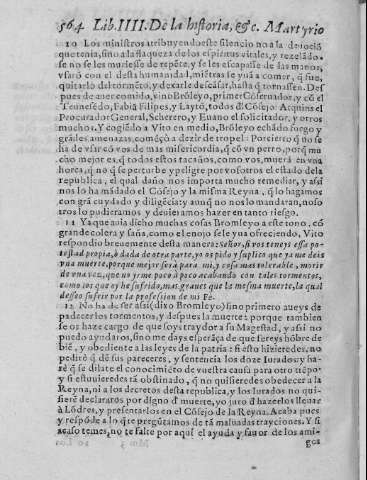 564 Lib. IIII. De la historia, &c. Martyrio
10 Los ministros atribuyendo este silencio no a la deuociõ
que tenia, sino a la flaqueza de los espiritus vitales, y rezelãdo-
se no se les muriesse de repẽte, y se les escapasse de las manos,
vsarõ con el desta humanidad, miẽtras se yuã a comer, q̃ fue,
quitarlo del tormẽto, y dexarle descãsar, hasta q̃ tornassen. Des
pues de auer comido, vino Brõleyo, primer Cõseruador, y cõ el
Teonesedo, Fabiã Filipes, y Laytõ, todos dl Cõsejo: Acquins el
Procurador General, Scherero, y Euano el solicitador, y otros
muchos. Y cogiẽdo a Vito en medio, Brõleyo echãdo fuego y
grãdes amenazas, comẽçò a dezir de tropel: Por cierto q̃ no se
ha de vsar cõ vos de mas misericordia, q̃ cõ vn perro, porq̃ mu
cho mejor es, q̃ todos estos tacaños, como vos, muerã en vna
horca, q̃ no q̃ se perturbe y peligre por vosotros el estado dela
republica, el qual daño nos importa mucho remediar, y assi
nos lo ha mãdado el Cõsejo y la misma Reyna, q̃ lo hagamos
con grã cuydado y diligẽcia: y aunq̃ no nos lo mandaran, noso
tros lo pudieramos y deuieramos hazer en tanto riesgo.
11 Ya que auia dicho muchas cosas Bromleyo a este tono, cõ
grande colera y saña, como el enojo se le yua ofreciendo, Vito
respondio breuemente desta manera: Señor, si vos teneys essa po-
testad propia, ò dada de otra parte, yo os pido y suplico que ya me deis
vna muerte, porque mejor serà para mi, y cosa mas tolerable, morir
de vna vez, que no yrme poco a poco acabando con tales tormentos,
como los que oy he sufrido, mas graues que la mesma muerte, la qual
desseo sufrir por la profession de mi Fè.
12 No ha de ser assi (dixo Bromleyo) sino primero aueys de
padecer los tormentos, y despues la muerte: porque tambien
se os haze cargo de que soys traydor a su Magestad, y assi no
puedo ayudaros, sino me days esperãça de que sereys hõbre de
biẽ, y obediente a las leyes de la patria: si esto hizieredes, no
pedirè q̃ dẽ sus pareceres, y sentencia los doze Iurados, y ha-
rè q̃ se dilate el conocimiẽto de vuestra causa para otro tiẽpo:
y si estuuieredes tã obstinado, q̃ no quisieredes obedecer a la
Reyna, ni a los decretos desta republica, y los Iurados no qui-
sierẽ declararos por digno d̃ muerte, yo juro d̃ hazerlos lleuar
à Lõdres, y presentarlos en el Cõsejo de la Reyna. Acaba pues
y respõde a lo q̃ te pregũtamos de tã maluadas trayciones. Y si
acaso temes, no te falte por aqui el ayuda y fauor de los ami-
gos